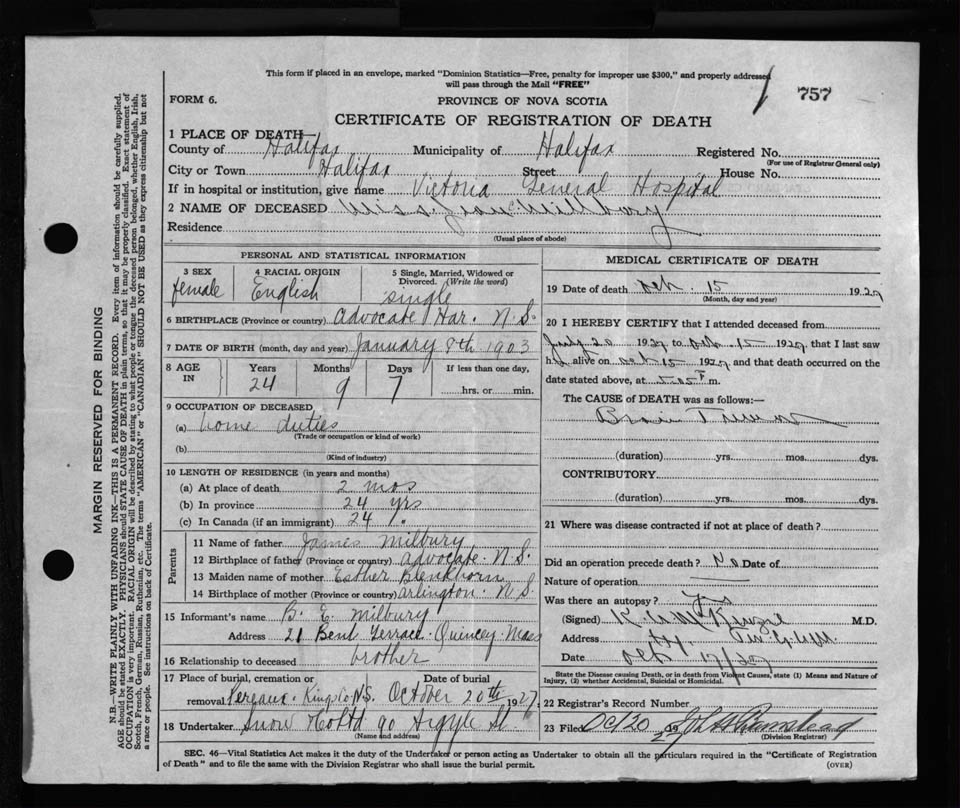 This form if placed in an envelope, marked "Dominion Statistics—Free, penalty for improper use $300," and properly addressed
will pass through the Mail "FREE"
757
FORM 6.
PROVINCE OF NOVA SCOTIA
CERTIFICATE OF REGISTRATION OF DEATH
1 PLACE OF DEATH—
County of Halifax Municipality of Halifax Registered No.
(For use of Registrar General only)
City or Town Halifax Street House No.
If in hospital or institution, give name Victoria General Hospital
2 NAME OF DECEASED Miss Millbury
Residence
(Usual place of abode)
PERSONAL AND STATISTICAL INFORMATION
3 SEX 4 RACIAL ORIGIN 5 Single, Married, Widowed or
Divorced. (Write the word)
female English single
6 BIRTHPLACE (Province or country) Advocate Har. N.S.
7 DATE OF BIRTH (month, day and year) January 8th 1903
8 AGE IN Years Months Days If less than one day,
24 9 7 hrs. or min.
9 OCCUPATION OF DECEASED
(a) home duties
(Trade or occupation or kind of work)
(b)
(Kind of industry)
10 LENGTH OF RESIDENCE (in years and months)
(a) At place of death 2 mos
(b) In province 24 yrs
(c) In Canada (if an immigrant) 24 "
Parents
11 Name of father James Milbury
12 Birthplace of father (Province or country) Advocate. N.S.
13 Maiden name of mother Esther Blenkhorn
14 Birthplace of mother (Province or country) Arlington. N.S.
15 Informant's name B. E. Milbury
Address 21 Bent Terrace. Quincey. Mass
16 Relationship to deceased brother
17 Place of burial, cremation or Date of burial
removal Kingsto N.S. October 20th 1927
18 Undertaker Snow & Co Ltd 90 Argyle St.
(Name and address)
MEDICAL CERTIFICATE OF DEATH
19 Date of death Oct. 15 1927
(Month, day and year)
20 I HEREBY CERTIFY that I attended deceased from
July 20 1927 to Oct. 15 1927 that I last saw
her alive on Oct 15 1927 and that death occurred on the
date stated above, at 5.05 P m.
The CAUSE OF DEATH was as follows:—
Brain Tumor
(duration) yrs. mos. dys.
CONTRIBUTORY.
(duration) yrs. mos. dys.
21 Where was disease contracted if not at place of death?
Did an operation precede death? No Date of
Nature of operation
Was there an autopsy? Yes
(Signed) M.D.
Address
Date Oct 17/27
State the Disease causing Death, or in death from Violent Causes, state (1) Means and Nature of
Injury, (2) whether Accidental, Suicidal or Homicidal.
22 Registrar's Record Number
23 Filed Oct 20
(Division Registrar)
SEC. 46—Vital Statistics Act makes it the duty of the Undertaker or person acting as Undertaker to obtain all the particulars required in the "Certificate of Registration
of Death" and to file the same with the Division Registrar who shall issue the burial permit.
(OVER)
MARGIN RESERVED FOR BINDING
N.B.—WRITE PLAINLY WITH UNFADING INK—THIS IS A PERMANENT RECORD. Every item of information should be carefully supplied.
AGE should be stated EXACTLY. PHYSICIANS should STATE CAUSE OF DEATH in plain terms, so that it may be properly classified. Exact statement of
OCCUPATION is very important. RACIAL ORIGIN will be described by stating to what people or tongue the deceased person belonged, whether English, Irish,
Scotch, French, German, Russian, Ruthenian, etc. The terms "AMERICAN" or "CANADIAN" SHOULD NOT BE USED as they express citizenship but not
a race or people. See instructions on back of Certificate.